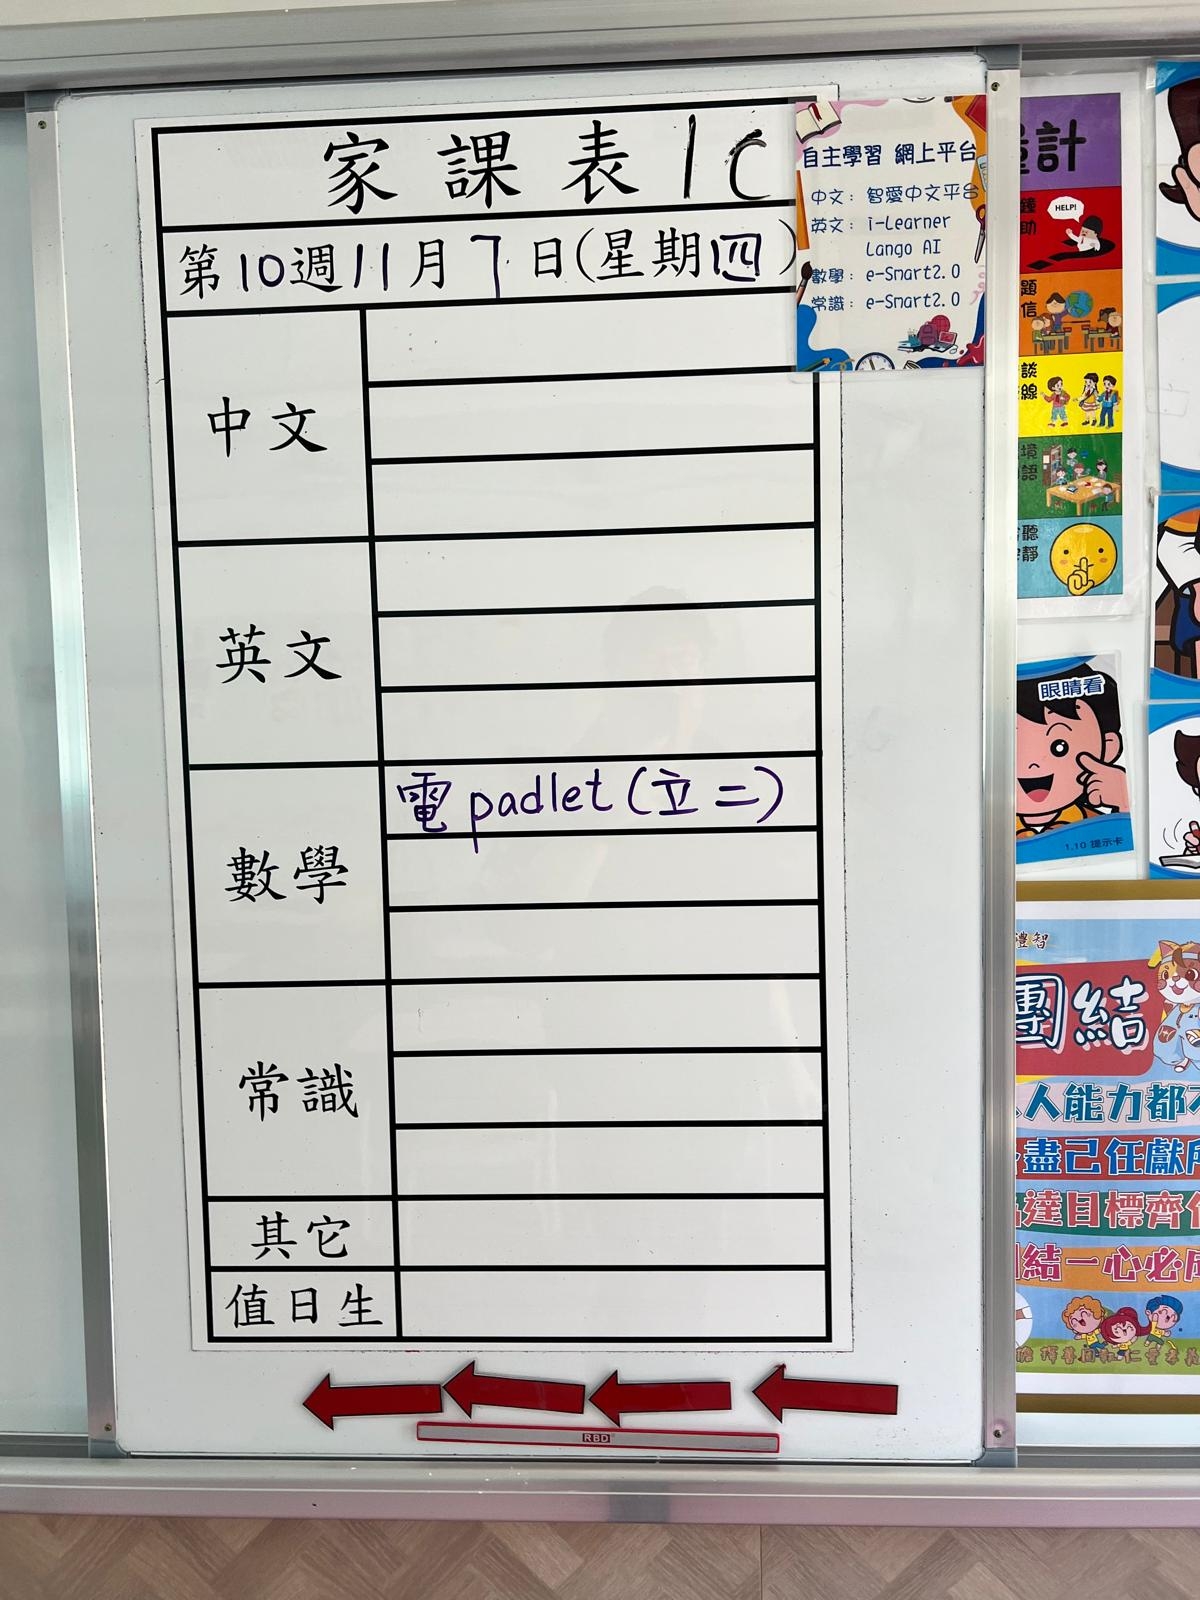 家課表 1C
第10週11月7日(星期四)
中文
英文
數學
電 padlet (立二)
常識
其它
值日生
RBD
自主學習 網上平台
中文： 智愛中文平台
英文： i-Learner
Lango AI
數學： e-Smart2.0
常識： e-Smart2.0
計
HELP!
助
題
信
談
線
境
語
聽
靜
眼睛看
1.10 提示卡
禮智
團結
人人能力都不
盡己任獻所
達目標齊
結一心必成